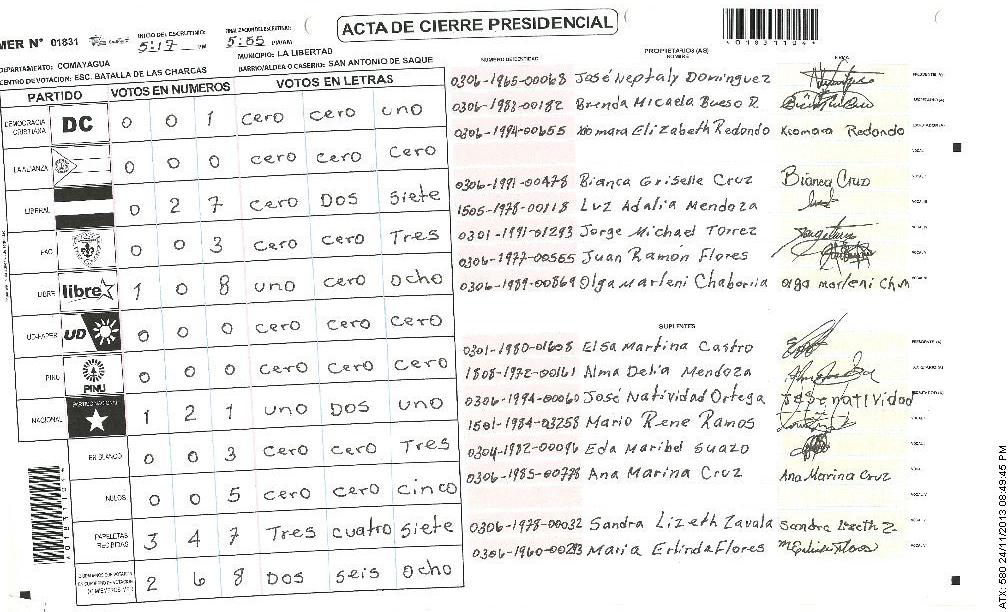 ACTA DE CIERRE PRESIDENCIAL
MER N° 01831
INICIO DEL ESCRUTINIO: 5:17 PM
FINALIZACION DEL ESCRUTINIO: 5:55 PM/AM
DEPARTAMENTO: COMAYAGUA
MUNICIPIO: LA LIBERTAD
CENTRO DE VOTACION: ESC. BATALLA DE LAS CHARCAS
BARRIO/ALDEA O CASERIO: SAN ANTONIO DE SAQUE
PARTIDO VOTOS EN NUMEROS VOTOS EN LETRAS
DEMOCRACIA CRISTIANA DC 0 0 1 cero cero uno
LA ALIANZA 0 0 0 cero cero cero
LIBERAL 0 2 7 cero Dos siete
PAC 0 0 3 cero cero Tres
LIBRE libre 1 0 8 uno cero ocho
UD-FAPER UD 0 0 0 cero cero cero
PINU PINU 0 0 0 cero cero cero
NACIONAL PARTIDO NACIONAL 1 2 1 uno Dos uno
EN BLANCO 0 0 3 cero cero Tres
NULOS 0 0 5 cero cero cinco
PAPELETAS RECIBIDAS 3 4 7 Tres cuatro siete
2 6 8 Dos seis ocho
PROPIETARIOS (AS)
NUMERO DE IDENTIDAD NOMBRE FIRMA
0306-1965-00068 José Neptaly Dominguez PRESIDENTE (A)
0306-1983-00182 Brenda Micaela Bueso R. SECRETARIO (A)
0306-1994-00655 Xiomara Elizabeth Redondo Xiomara Redondo
0306-1991-00478 Bianca Griselle Cruz Bianca Cruz
1505-1978-00118 Luz Adalia Mendoza
0301-1991-01293 Jorge Michael Torrez
0306-1977-00565 Juan Ramón Flores
0306-1989-00869 Olga Marleni Chaborria olga marleni Chm
SUPLENTES
0301-1980-01608 Elsa Martina Castro PRESIDENTE (A)
1808-1972-00161 Alma Delia Mendoza SECRETARIO (A)
0306-1994-00060 José Natividad Ortega José natividad
1501-1984-03258 Mario Rene Ramos
0304-1982-00096 Eda Maribel Suazo
0306-1985-00778 Ana Marina Cruz Ana Marina Cruz
0306-1978-00032 Sandra Lizeth Zavala Sandra Lizeth Z
0306-1960-00293 Maria Erlinda Flores
ATX: 580 24/11/2013 08:49:45 PM